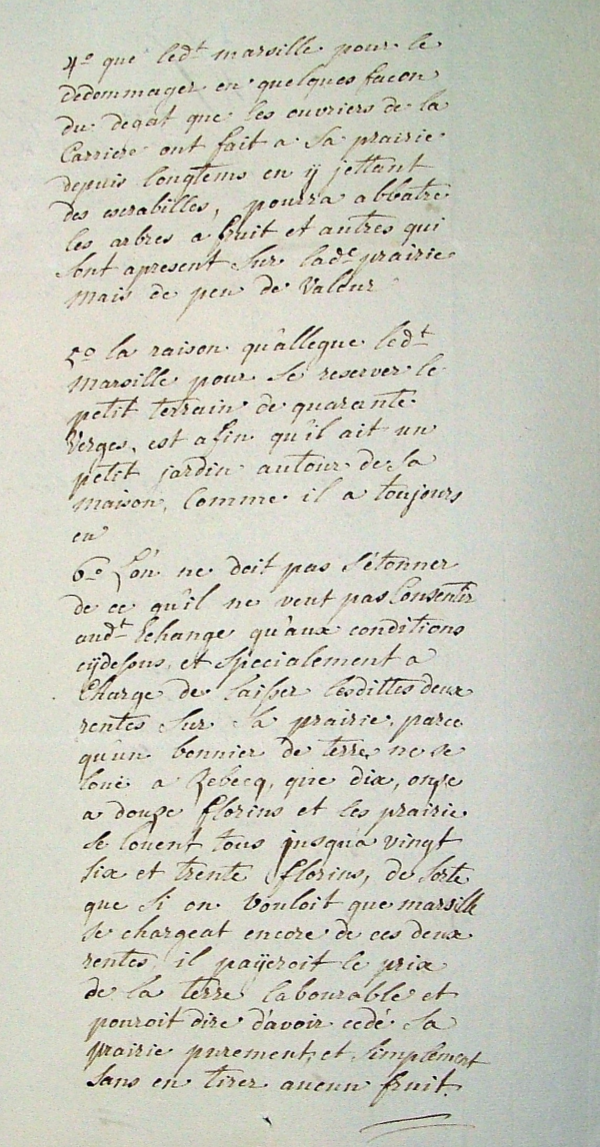 4° que led.t marsille pour le
dedommager en quelques facon
du degat que les ouvriers de la
Carriere ont fait a sa prairie
depuis longtems en ÿ jettant
des escrabilles, pourra abbatre
les arbres a fruit et autres qui
sont apresent sur lad.e prairie
mais de peu de Valeur
5° la raison qu'allegue led.t
marsille pour se reserver le
petit terrain de quarante
Verges, est afin qu'il ait un
petit jardin autour de sa
maison, comme il a toujours
eu
6° L'on ne doit pas s'étonner
de ce qu'il ne veut pas Consentir
aud.t Echange qu'aux conditions
cÿdessus, et specialement a
Charge de laisser lesdittes deux
rentes sur la prairie, parce
qu'un bonnier de terre ne se
loue a Rebecq, que dix, onze
a douze florins et les prairie
se louent tous jusqu'a vingt
six et trente florins, de sorte
que si on vouloit que marsille
se chargeat encore de ces deux
rentes, il paÿeroit le prix
de la terre labourable et
pouroit dire d'avoir cedé sa
prairie purement, et simplement
sans en tirer aucun fruit.